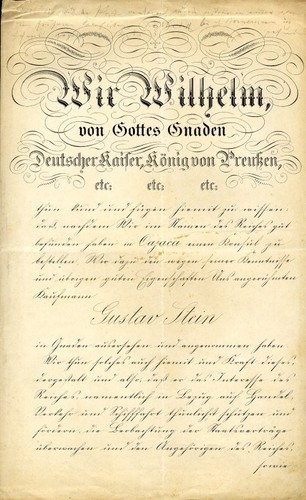 Wir Wilhelm,
von Gottes Gnaden
Deutscher Kaiser, König von Preußen,
etc: etc: etc:
thun kund und fügen hiermit zu wissen:
daß, nachdem Wir im Namen des Reichs gut
befunden haben in Oajaca einen Konsul zu
bestellen Wir dazu den wegen seiner Kenntnisse
und übrigen guten Eigenschaften Uns angerühmten
Kaufmann
Gustav Stein
in Gnaden ausersehen und angenommen haben
Wir thun solches auch hiermit und Kraft dieses,
dergestalt und also, daß er das Interesse des
Reiches, namentlich in Bezug auf Handel,
Verkehr und Schifffahrt thunlichst schützen und
fördern, die Beobachtung der Staatsverträge
überwachen und den Angehörigen des Reiches,
sowie